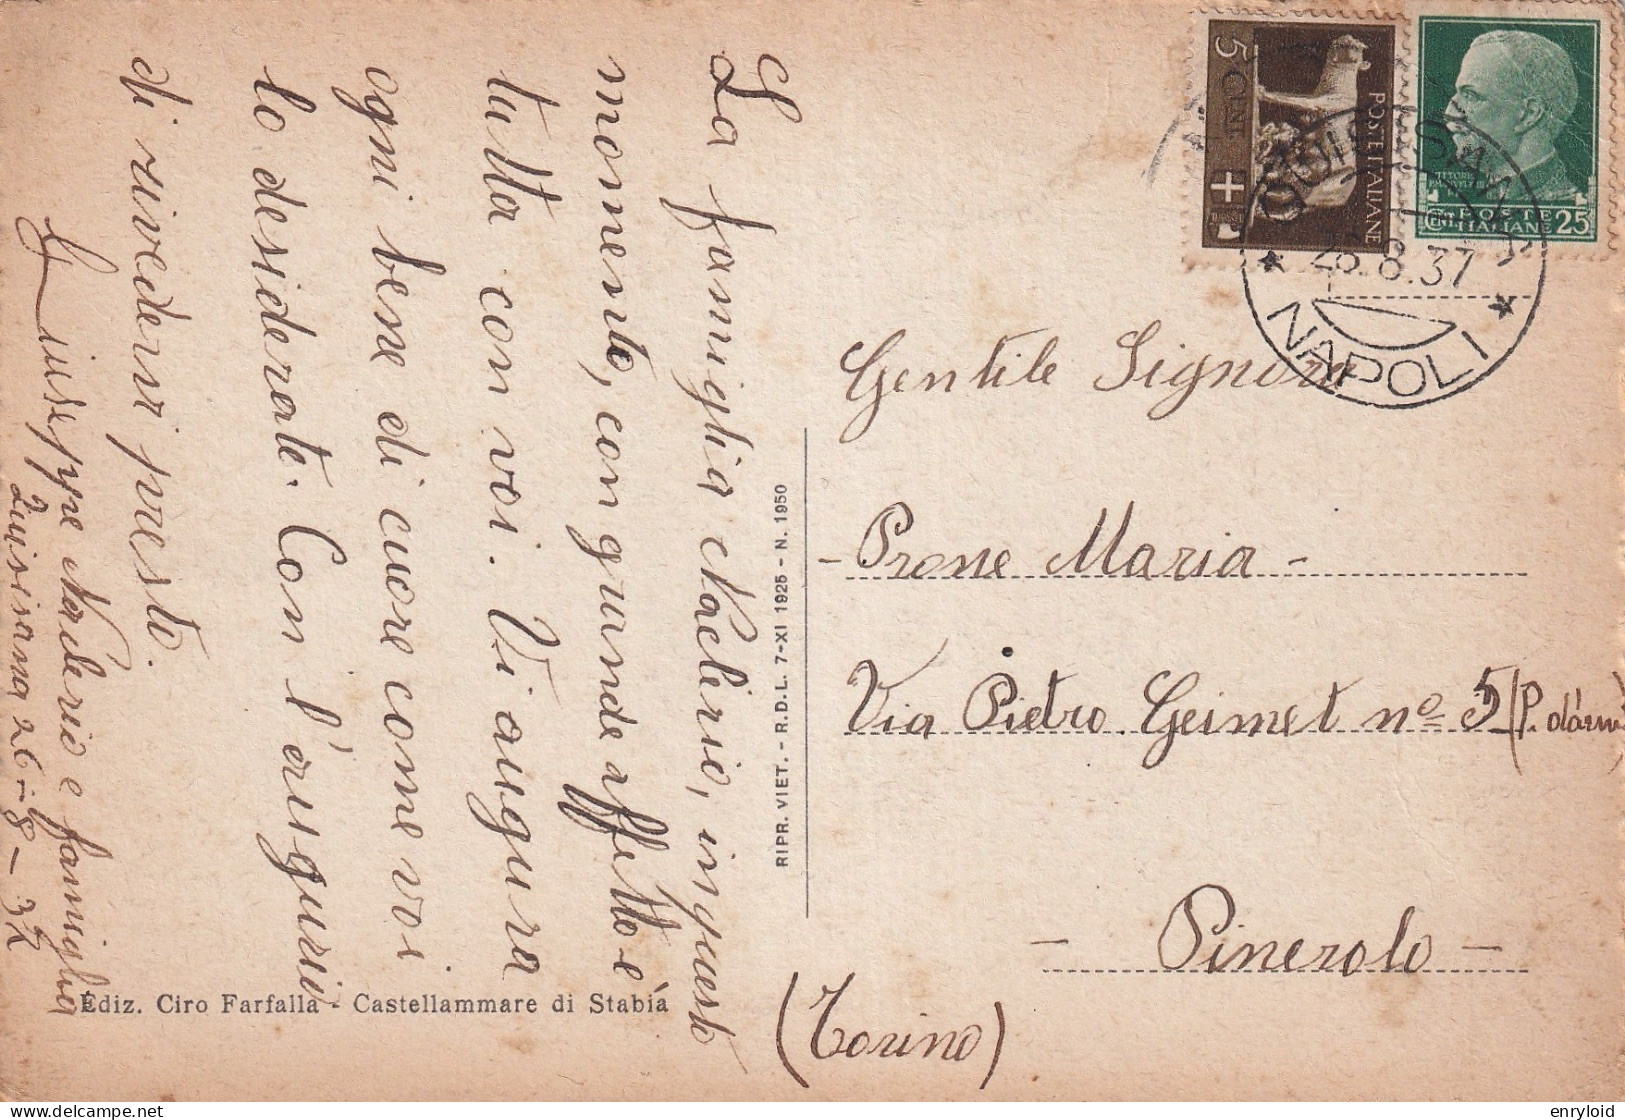 La famiglia Naclerio, in questo
momento, con grande affetto è
tutta con voi. Vi augura
ogni bene di cuore come voi
lo desiderate. Con l'augurio
di rivedervi presto.
Giuseppe Naclerio e famiglia
Quisisana 26-8-37
Ediz. Ciro Farfalla - Castellammare di Stabia
RIPR. VIET. - R.D.L. 7-XI 1925 - N. 1950
5 CENT.
POSTE ITALIANE
VITTORIO
EM
CENT. POSTE 25
ITALIANE
QUISISANA
26.8.37
NAPOLI
Gentile Signora
- Prone Maria -
Via Pietro Geimet nº 5 (P.
- Pinerolo -
(Torino)
enryloid